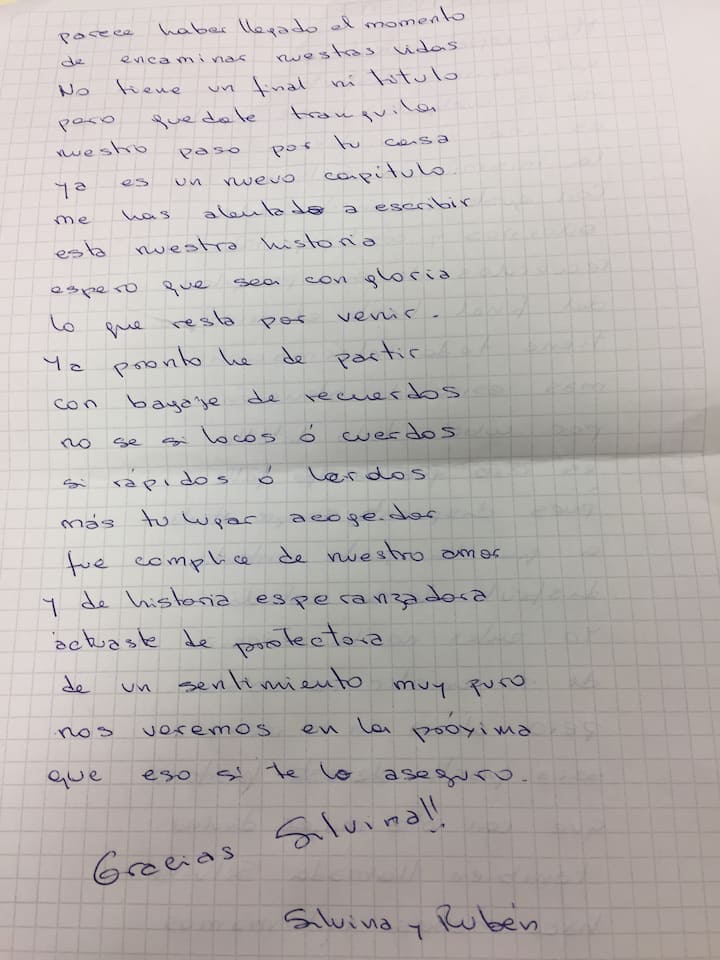 parece haber llegado el momento
de encaminar nuestras vidas
No tiene un final ni titulo
pero quedate tranquila
nuestro paso por tu casa
ya es un nuevo capítulo.
me has alentado a escribir
esta nuestra historia
espero que sea con gloria
lo que resta por venir.
Ya pronto he de partir
con bagaje de recuerdos
no se si locos ó cuerdos
si rápidos ó lerdos
más tu lugar acogedor
fue complice de nuestro amor
y de historia esperanzadora
actuaste de protectora
de un sentimiento muy puro
nos veremos en la próxima
que eso si te lo aseguro.
Gracias Silvina!!
Silvina y Rubén